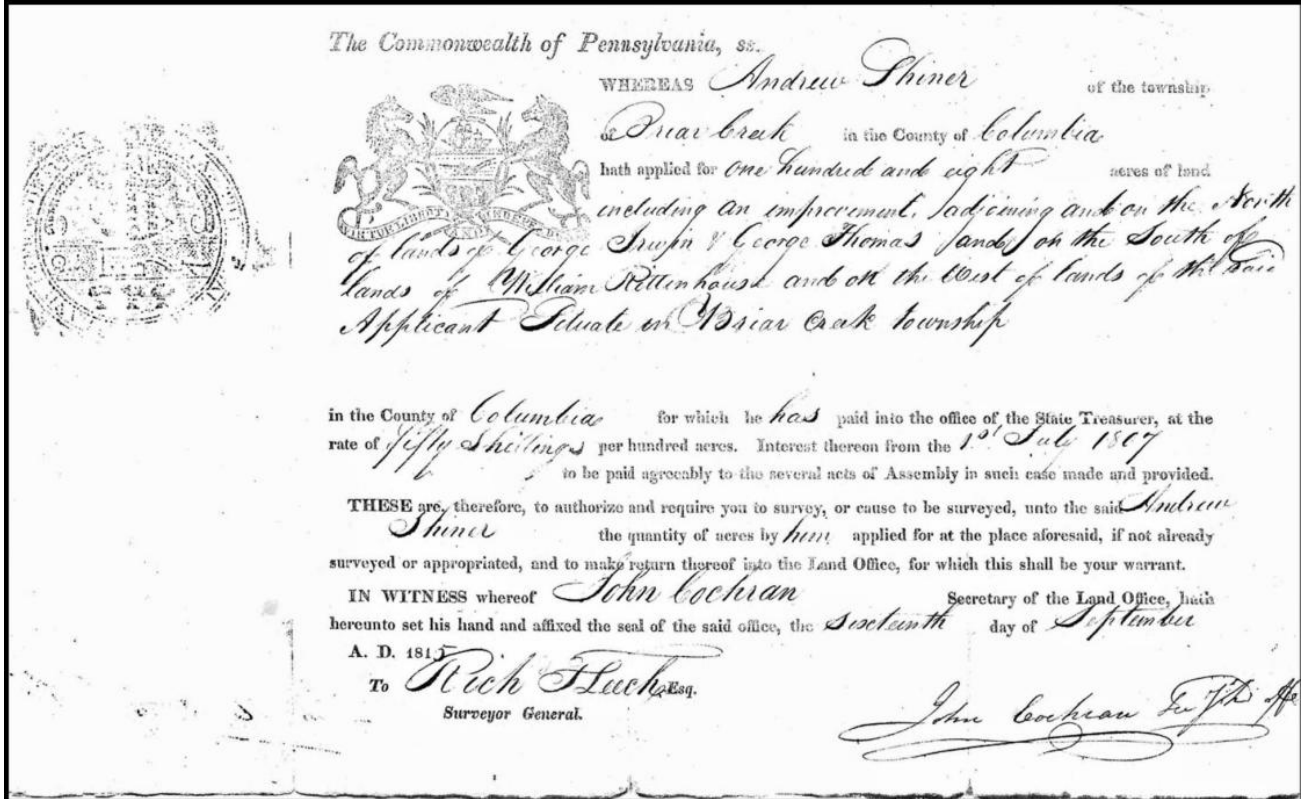 The Commonwealth of Pennsylvania, ss.
WHEREAS Andrew Shiner of the township
of Briar Creek in the County of Columbia
hath applied for one hundred and eight acres of land
including an improvement, adjoining and on the North
of lands of George Irwin & George Thomas and on the South of
lands of William Rittenhouse and on the West of lands of the said
Applicant Situate in Briar Creek township
VIRTUE LIBERTY AND INDEPENDENCE
in the County of Columbia for which he has paid into the office of the State Treasurer, at the
rate of fifty Shillings per hundred acres. Interest thereon from the 1st July 1807
to be paid agreeably to the several acts of Assembly in such case made and provided.
THESE are, therefore, to authorize and require you to survey, or cause to be surveyed, unto the said Andrew
Shiner the quantity of acres by him applied for at the place aforesaid, if not already
surveyed or appropriated, and to make return thereof into the Land Office, for which this shall be your warrant.
IN WITNESS whereof John Cochran Secretary of the Land Office, hath
hereunto set his hand and affixed the seal of the said office, the sixteenth day of September
A. D. 1815
To Rich Esq.
Surveyor General.
John Cochran